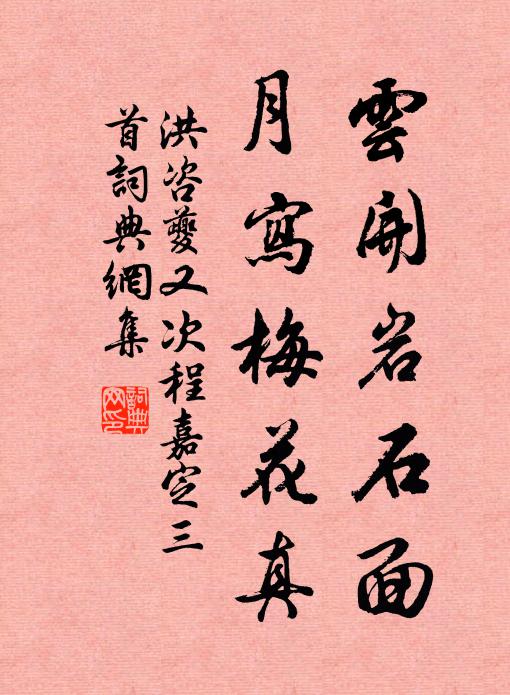 雲開岩石面
月寫梅花真
洪咨夔又次程嘉定三
首詞典網集
詞典
網印